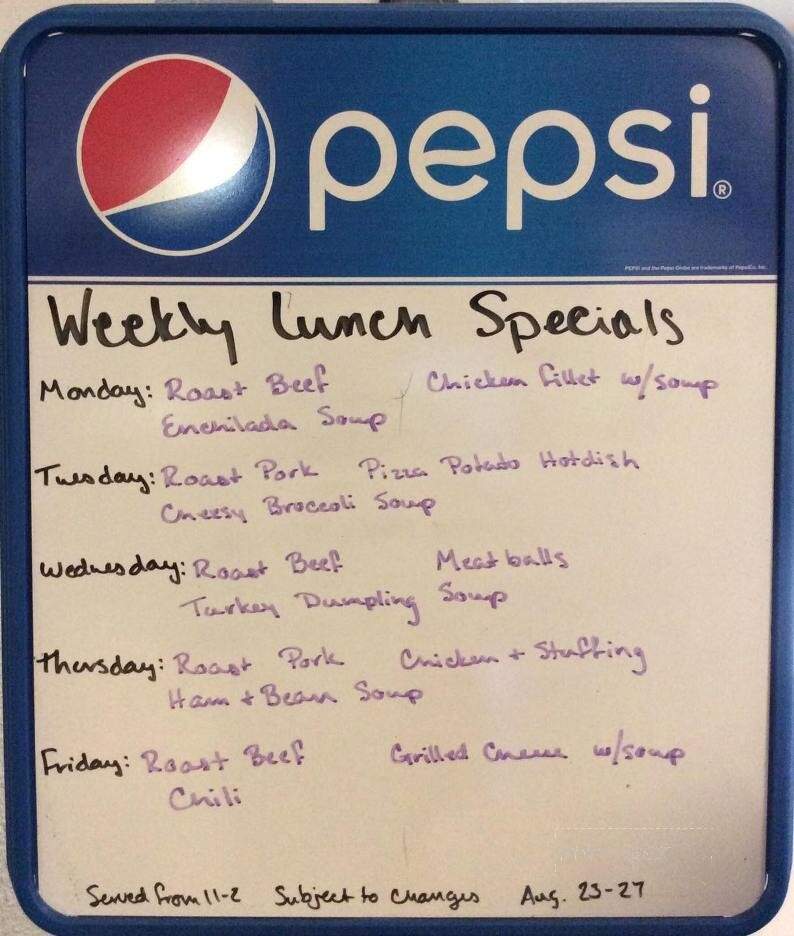 pepsi®
PEPSI and the Pepsi Globe are trademarks of PepsiCo, Inc.
Weekly Lunch Specials
Monday: Roast Beef Chicken fillet w/soup
Enchilada Soup
Tuesday: Roast Pork Pizza Potato Hotdish
Cheesy Broccoli Soup
Wednesday: Roast Beef Meatballs
Turkey Dumpling Soup
Thursday: Roast Pork Chicken + Stuffing
Ham + Bean Soup
Friday: Roast Beef Grilled Cheese w/soup
Chili
Served from 11-2 Subject to changes Aug. 23-27